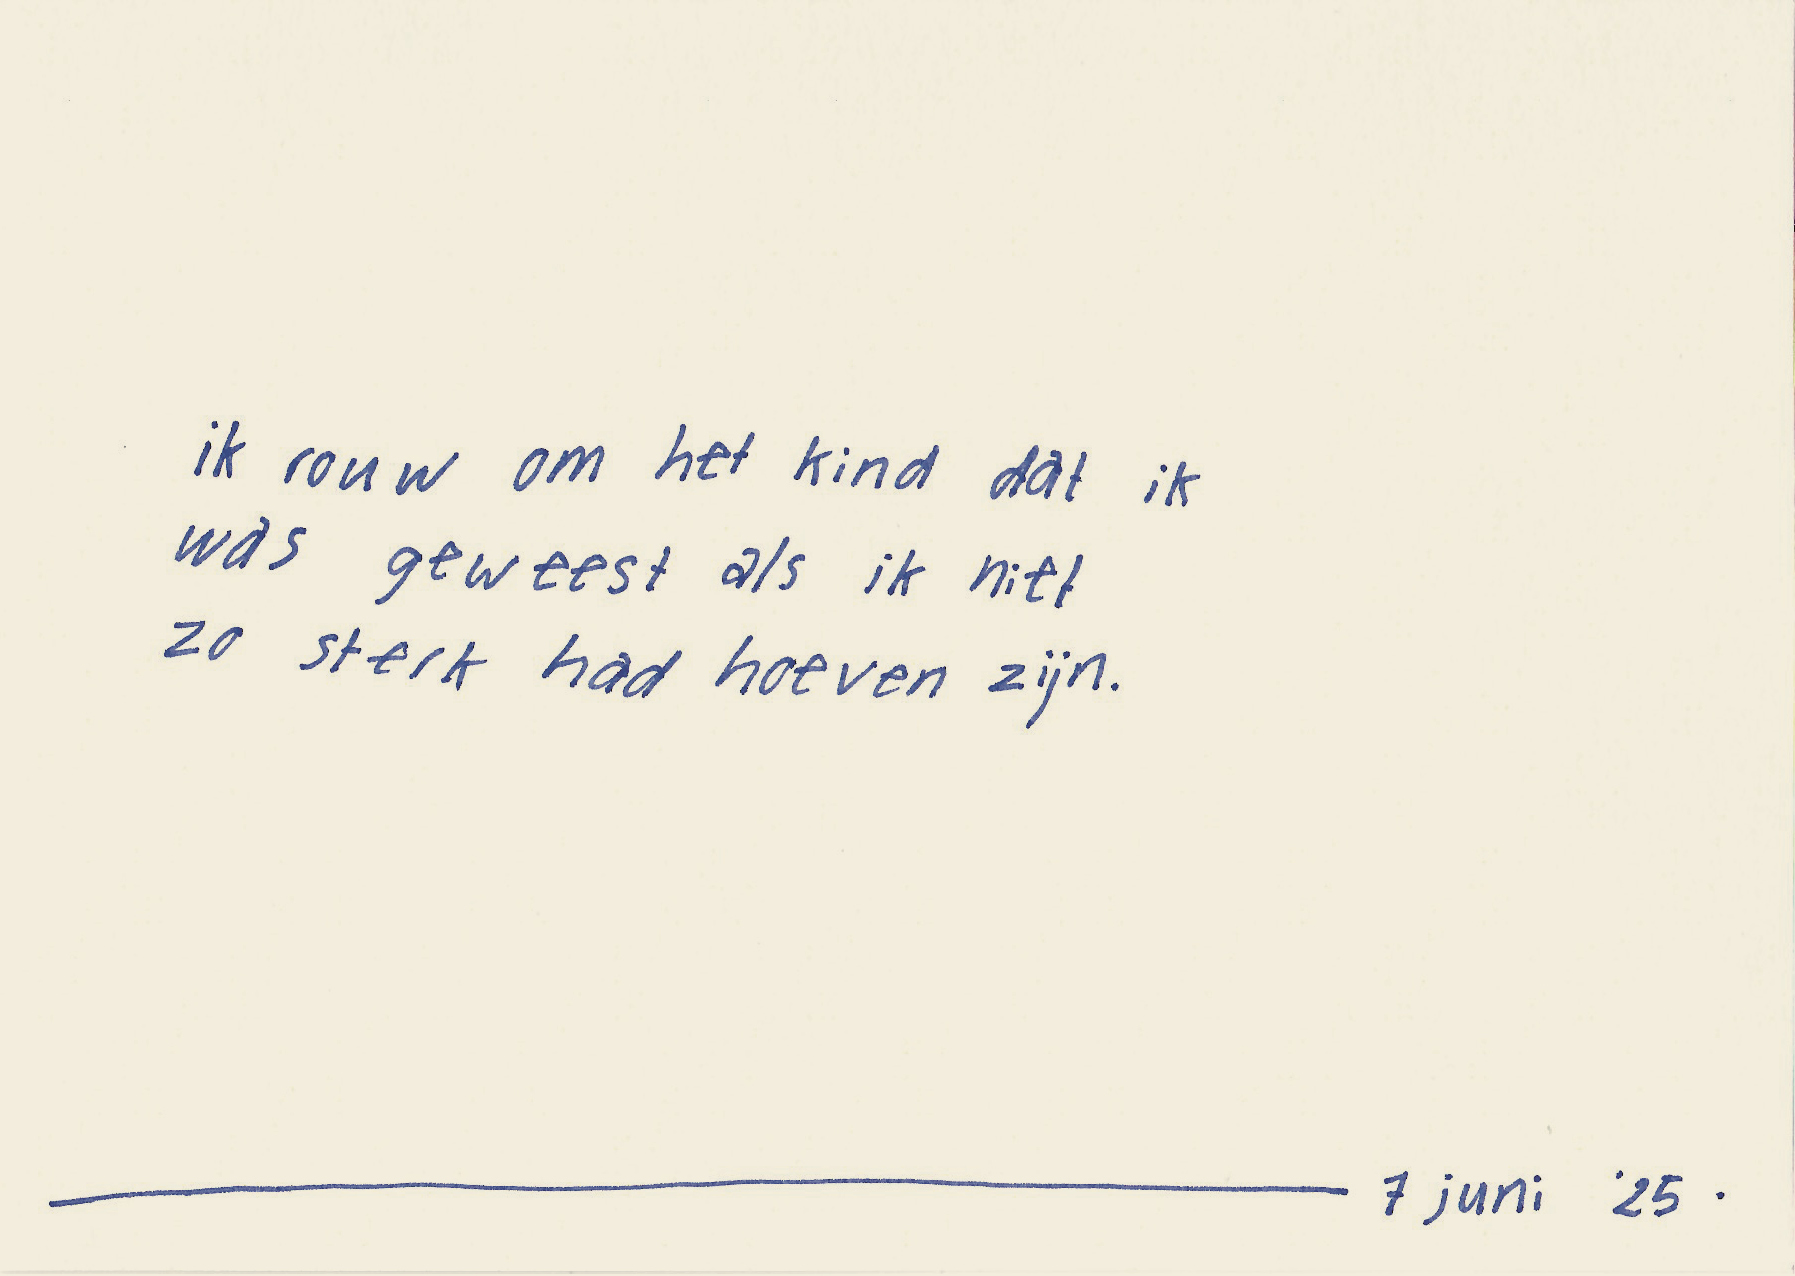 ik rouw om het kind dat ik
was geweest als ik niet
zo sterk had hoeven zijn.
7 juni '25.